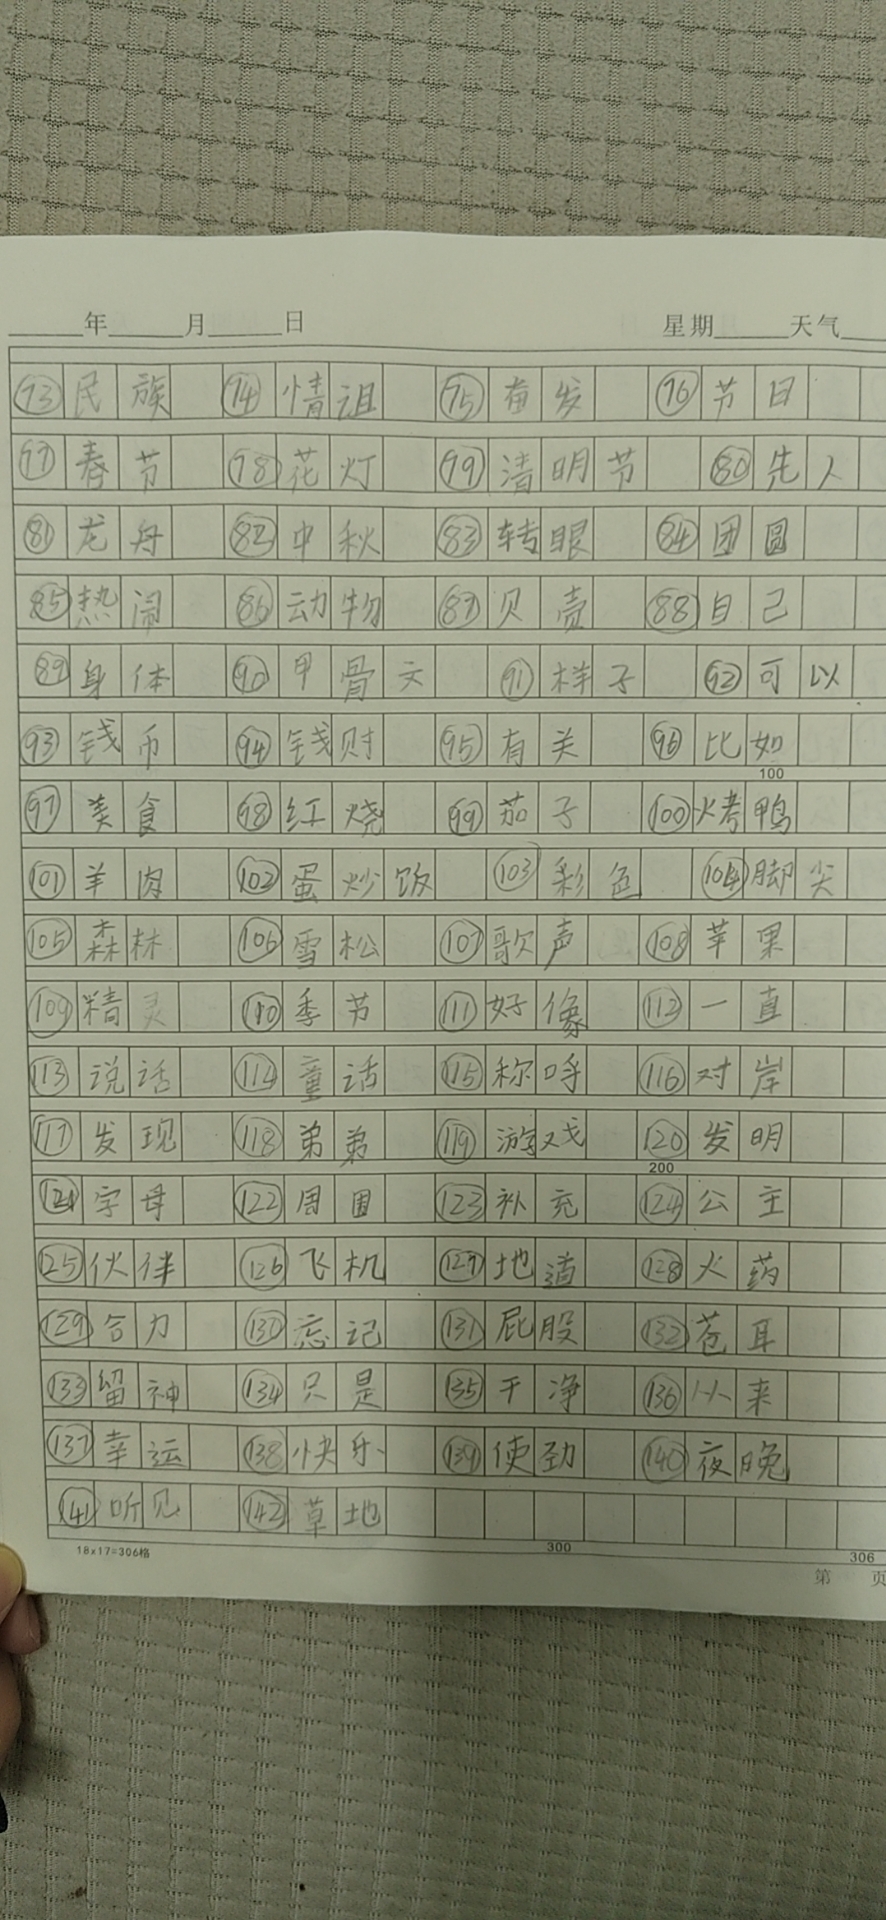 年 月 日 星期 天气
73 民族 74 情诅 75 奋发 76 节日
77 春节 78 花灯 79 清明节 80 先人
81 龙舟 82 中秋 83 转眼 84 团圆
85 热闹 86 动物 87 贝壳 88 自己
89 身体 90 甲骨文 91 样子 92 可以
93 钱币 94 钱财 95 有关 96 比如
100
97 美食 98 红烧 99 茄子 100 火烤鸭
101 羊肉 102 蛋炒饭 103 彩色 104 脚尖
105 森林 106 雪松 107 歌声 108 苹果
109 精灵 110 季节 111 好像 112 一直
113 说话 114 童话 115 称呼 116 对岸
117 发现 118 弟弟 119 游戏 120 发明
200
121 字母 122 周围 123 补充 124 公主
125 伙伴 126 飞机 127 地道 128 火药
129 合力 130 忘记 131 屁股 132 苍耳
133 留神 134 只是 135 干净 136 从来
137 幸运 138 快乐 139 使劲 140 夜晚
141 听见 142 草地
300
18×17=306格 306
第 页